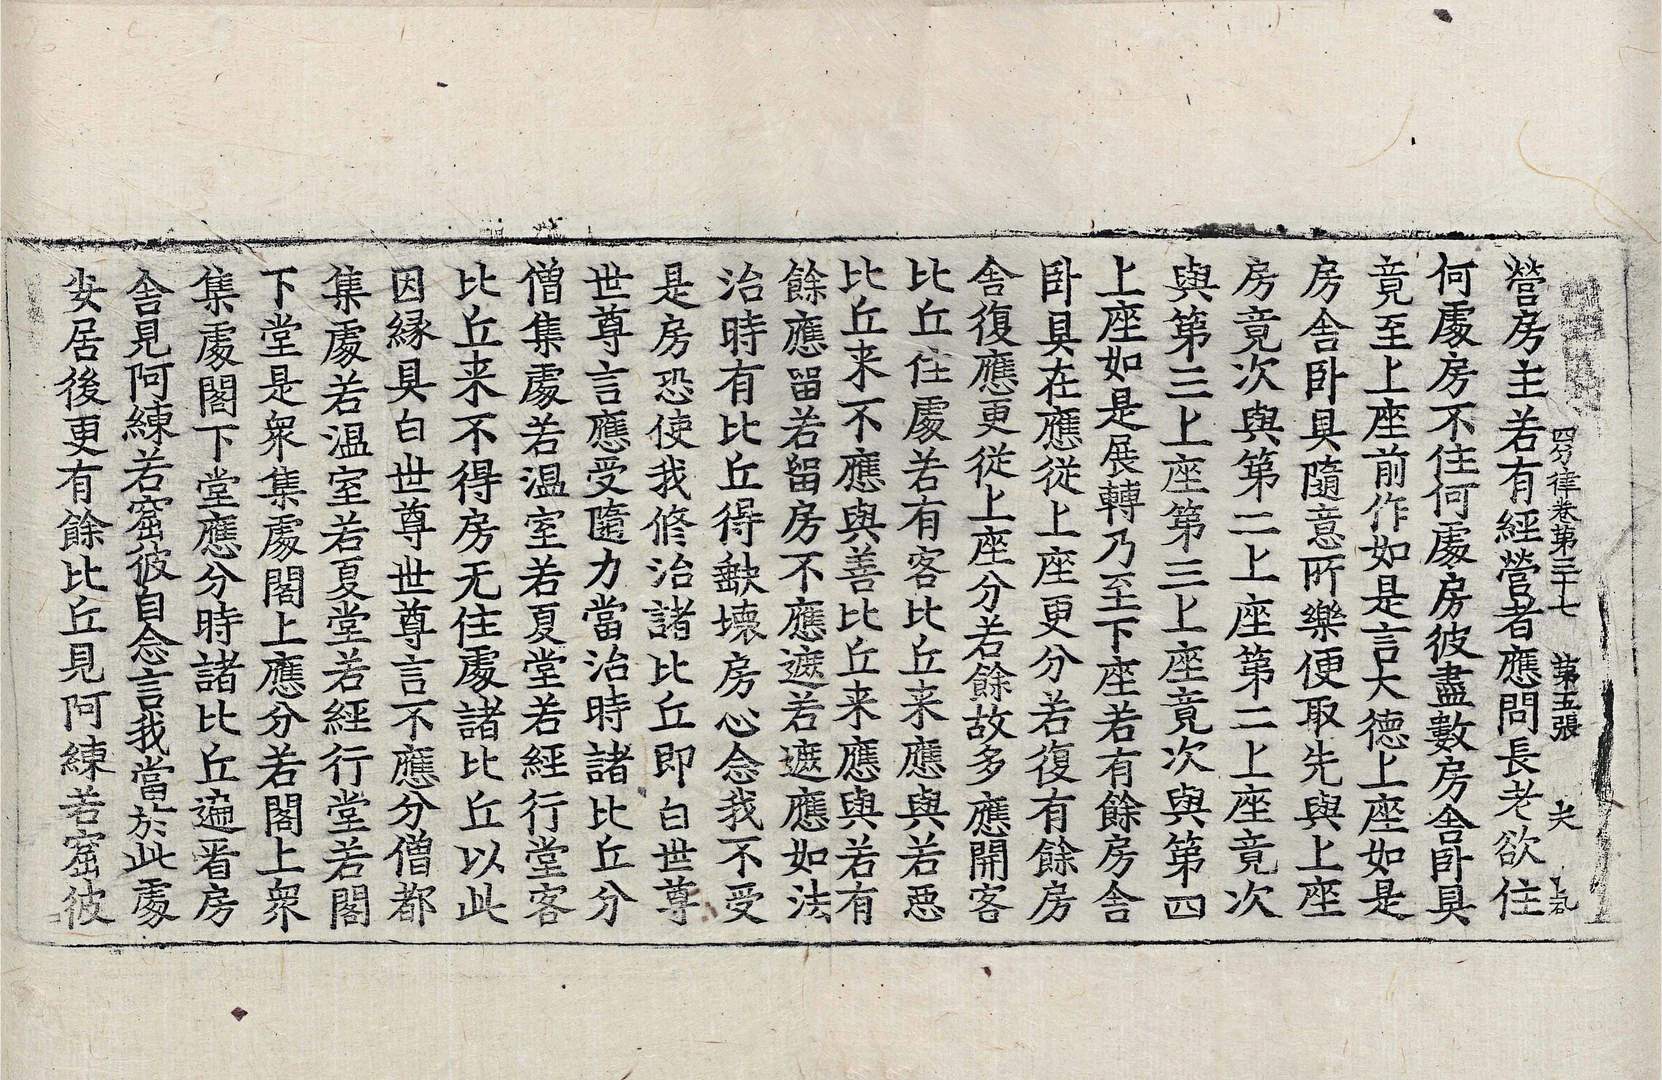 四分律卷第三十七　第五張　夾
營房主若有經營者應問長老欲住
何處房不住何處房彼盡數房舍卧具
竟至上座前作如是言大德上座如是
房舍卧具隨意所樂便取先與上座
房竟次與第二上座第二上座竟次
與第三上座第三上座竟次與第四
上座如是展轉乃至下座若有餘房舍
卧具在應從上座更分若復有餘房
舍復應更從上座分若餘故多應開客
比丘住處若有客比丘来應與若惡
比丘来不應與善比丘来應與若有
餘應留若留房不應遮若遮應如法
治時有比丘得缺壞房心念我不受
是房恐使我修治諸比丘即白世尊
世尊言應受隨力當治時諸比丘分
僧集處若温室若夏堂若經行堂客
比丘来不得房无住處諸比丘以此
因緣具白世尊世尊言不應分僧都
集處若温室若夏堂若經行堂若閣
下堂是衆集處閣上應分若閣上衆
集處閣下堂應分時諸比丘遍看房
舍見阿練若窟彼自念言我當於此處
安居後更有餘比丘見阿練若窟彼